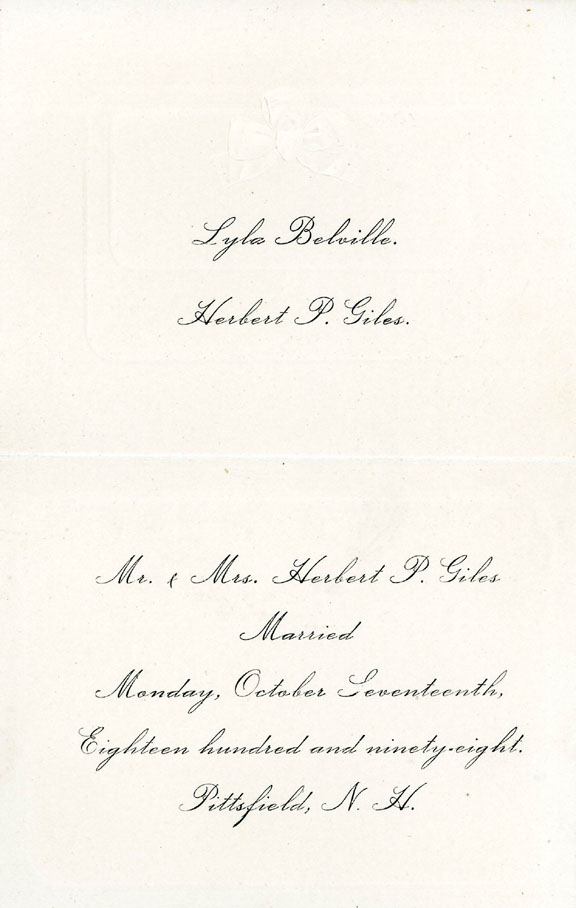 Lyla Belville.
Herbert P. Giles.
Mr. & Mrs. Herbert P. Giles
Married
Monday, October Seventeenth,
Eighteen hundred and ninety-eight.
Pittsfield, N. H.